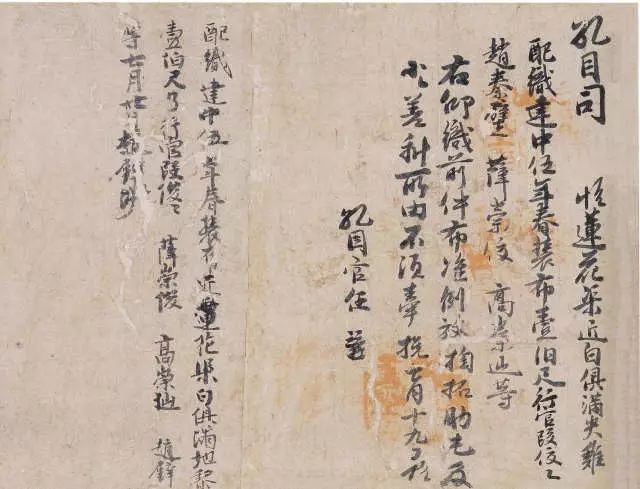 孔目司 帖蓮花渠近白俱滿失雞
配織建中伍年春裝布壹伯尺行官段俊俊
趙秦璧 薛崇俊 高崇迦等
右仰織前件布准例放掏拓助屯及
小小差科所由不須牽挽七月十九日帖
孔目官任善
配織建中伍年春裝布近蓮花渠白俱滿地黎
壹伯尺了行官段俊俊 薛崇俊 高崇迦 趙
等七月廿日趙抄